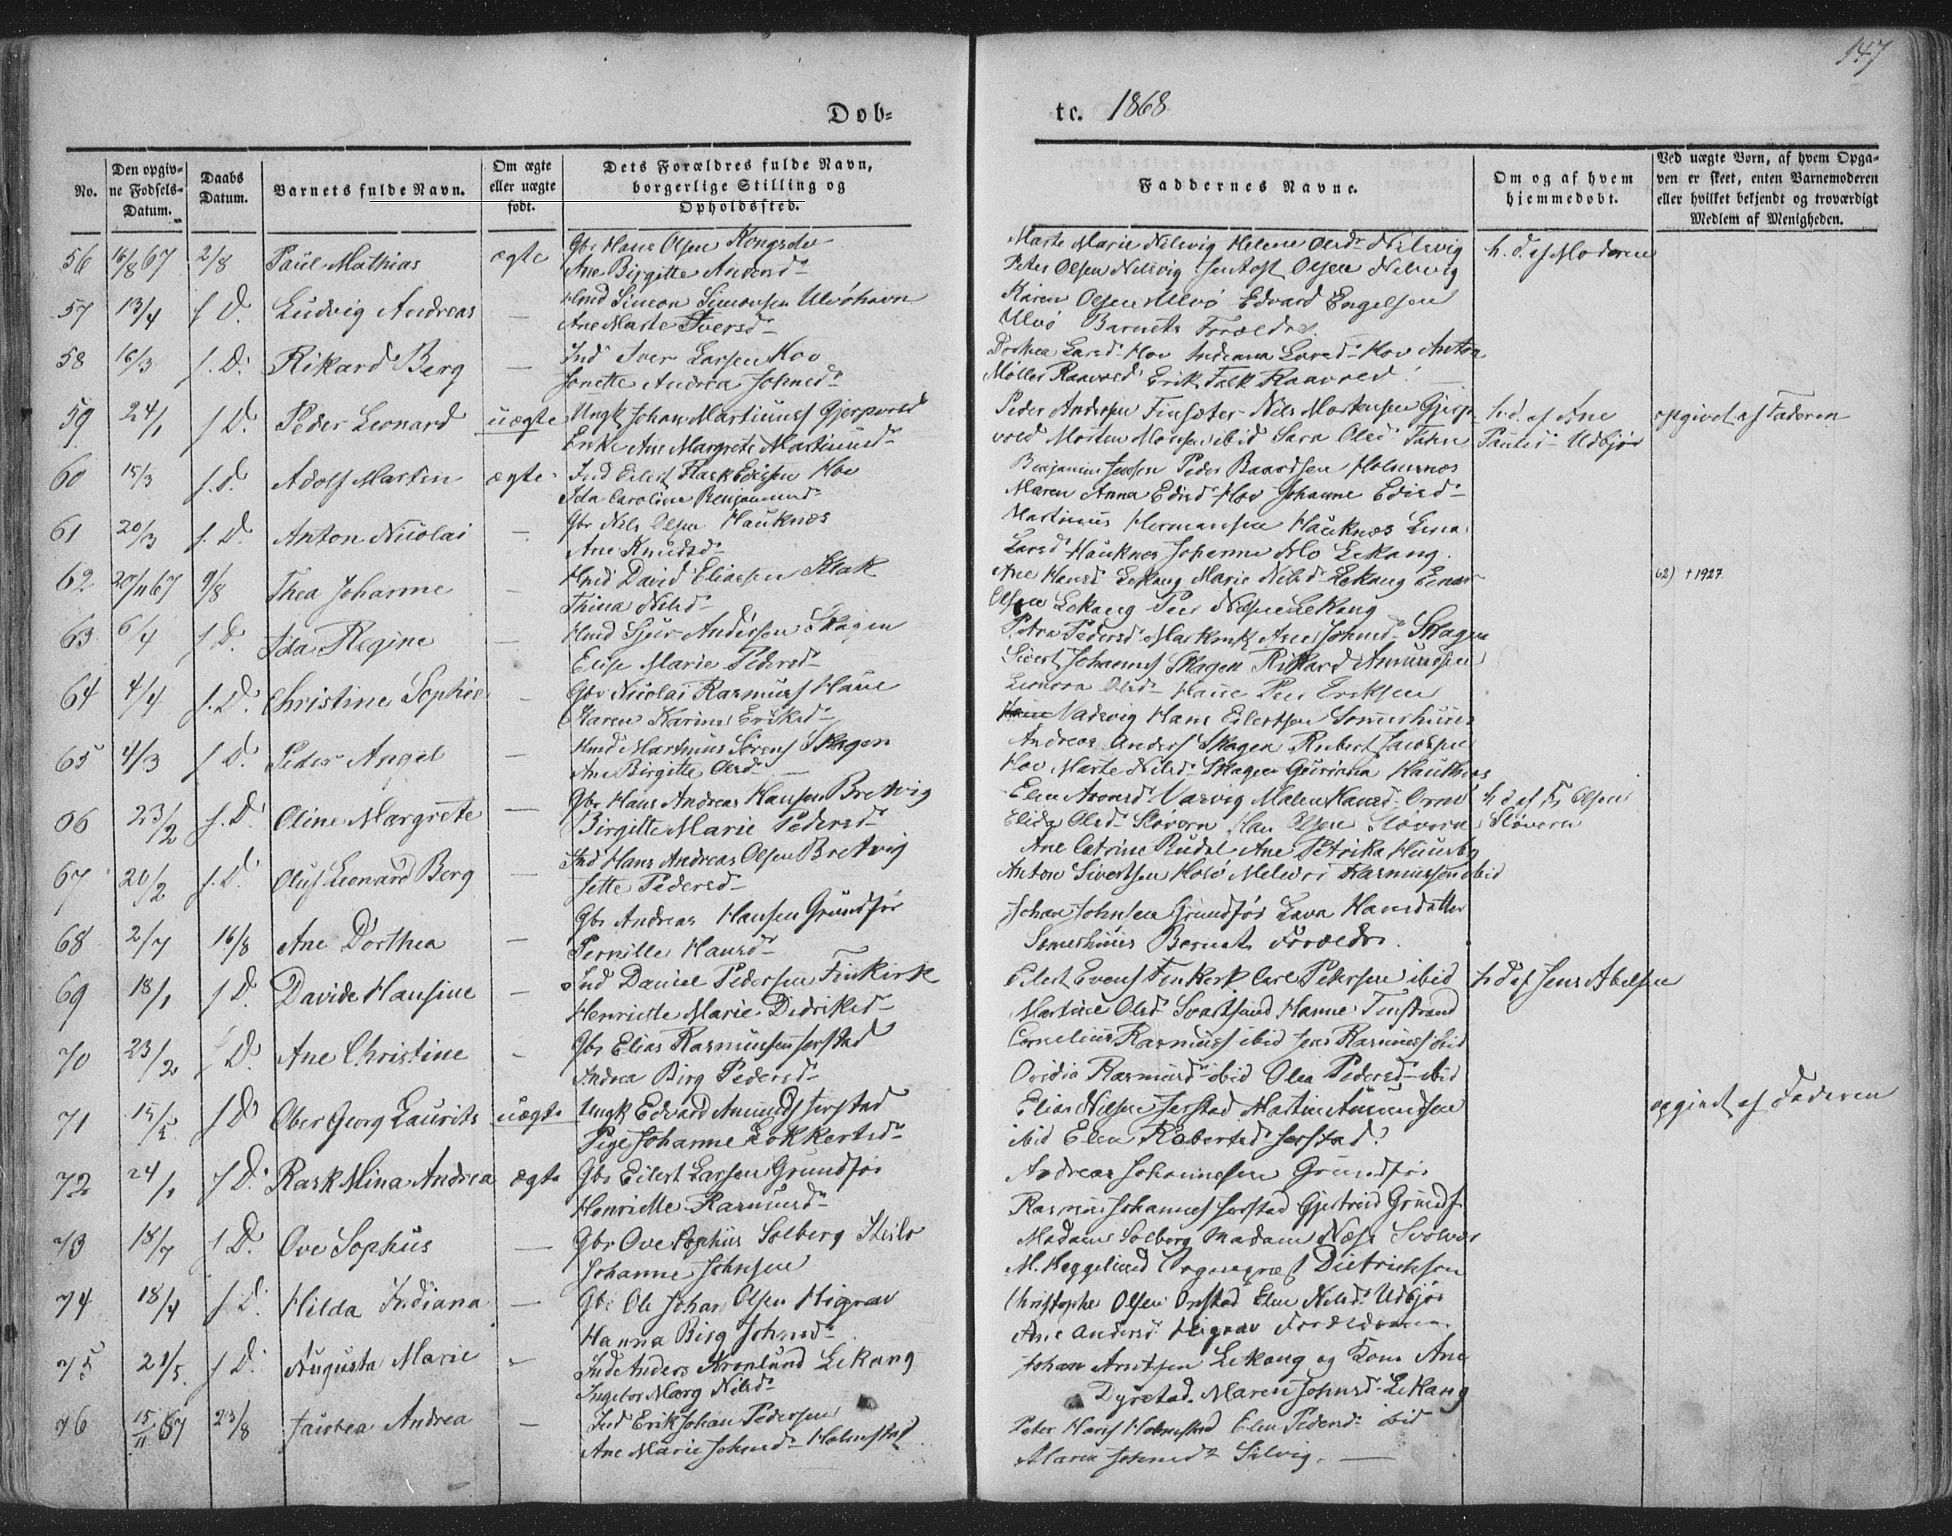 147
Døb=
tc. 1868
No.
Den opgiv-
ne Fødsels-
Datum.
Daabs
Datum.
Barnets fulde Navn.
Om ægte
eller uægte
født.
Dets Forældres fulde Navn,
borgerlige Stilling og
Opholdssted.
Faddernes Navne.
Om og af hvem
hjemmedøbt.
Ved uægte Børn, af hvem Opga-
ven er skeet, enten Barnemoderen
eller hvilket bekjendt og troværdigt
Medlem af Menigheden.
56 16/8 67 2/8 Paul Mathias ægte Gbr Hans Olsen Kongselv
Ane Birgitte Andersd
Marte Marie Nilsvig Helene Olsd Nilsvig h. d. af Moderen
Peter Olsen Nilsvig Olsen Nilsvig
57 13/4 s. D. Ludvig Andreas — Hmd Simon Simonsen Ulvöhavn
Ane Marte Iversd
Karen Olsen Ulvö Edvard Engelsen
Ulvö Barnets Forældre.
58 16/3 s. D. Rikard Berg — Ind Iver Larsen Hov
Jonette Andrea Johnsd
Dorthea Larsd Hov Indiana Larsd Hov Anton
Möller Raavold Erik Falk Raavold
59 24/1 s. D. Peder Leonard uægte Ungk Johan Martinus Gjerpvold
Enke Ane Margrete Martinusd
Peder Andersen Finsæter Nils Mortensen Gjerp h. d. af Ane opgivet af Faderen
vold Morten Monsen ibid Sara Olsd Udbjör
60 15/3 s. D. Adolf Martin ægte Ind Eilert Hov
Ida Caroline Benjaminsd
Benjamin Jensen Peder Baardsen Holmenæs
Maren Anna Edisd Hov Johanne Edisd
61 20/3 s. D. Anton Nicolai — Gbr Nils Olsen Hauknæs
Ane Knudsd
Martinus Hermansen Hauknæs
Larsd Hauknes Johanne Mo Lekang.
62 20/11 67 9/8 Thea Johanne — Hmd David Eliassen Klak
Trina Nilsd
Ane Hansd Lekang Marie Nilsd Lekang Einar 62) † 1927.
Olsen Lekang Peer Lekang
63 6/4 s. D. Ida Regine — Hmd Sjur Andersen Skagen
Elise Marie Pedersd
Petra Pedersd Ane Johnsd Skagen
Sivert Johannes Skagen Rikard Amundsen
64 4/4 s. D. Christine Sophie — Gbr Nicolai Rasmus Haue
Karen Karine Eriksd
Leonora Olsd Haue Peer Eriksen
Vadsvig Hans Eilertsen Sommerhuus
65 4/3 s. D. Peder Angel — Hmd Martinus Sörens Skagen
Ane Birgitte Olsd
Andreas Anders Skagen Rubert Jacobsen
Hov Marte Nilsd Skagen Guriana Hauknes
66 23/2 s. D. Oline Margrete — Gbr Hans Andreas Hansen Bretvig
Birgitte Marie Pedersd
Elen Aronsd Vasvig Malen Hansd h. d. af Fr Olsen
Olsd Slövern Olsen Slövern Slövern
67 20/2 s. D. Oluf Leonard Berg — Ind Hans Andreas Olsen Bretvig
Jette Pedersd
Ane Catrine Ane Petrika
Anton Sivertsen Rasmussen ibid
68 2/7 16/8 Ane Dorthea — Gbr Andreas Hansen Grundför
Pernille Hansd
Johan Johnsen Grundför Hansdatter
Sommerhuus Barnets Forældre.
69 18/1 s. D. Davide Hansine — Ind Daniel Pedersen Finkirk
Henriette Marie Didriksd
Eilert Evens Finkerk Carl Pedersen ibid h. d. af Jens Abelsen
Martine Olsd Svartsund Hanne Finstrand
70 23/2 s. D. Ane Christine — Gbr Elias Rasmussen Jerstad
Andrea Birg Pedersd
Cornelius Rasmuss ibid Jens Rasmuss ibid
Ovidia Rasmusd ibid Olea Pedersd ibid
71 15/5 s. D. Ober Georg Laurits uægte Ungk Edvard Amunds Jerstad
Pige Johanne Lokkertsd
Elias Nilsen Jerstad Martin Amundsen opgivet af Faderen
ibid Elen Robertsd Jerstad
72 24/1 s. D. Rask Mina Andrea ægte Gbr Eilert Larsen Grundför
Henriette Rasmusd
Andreas Johannesen Grundför
Rasmus Johannes Jerstad Gjertrud Grundf
73 18/7 s. D. Ove Sophus — Gbr Ove Sophus Solberg Skilo
Johanne Johnsen
Madam Solberg Madam Næss Svolvær
M. Heggelund Sognepræst Dietrichson
74 18/4 s. D. Hilda Indiana — Gbr Ole Johan Olsen Higrav
Hanna Birg Johnsd
Christopher Olsen Örstad Elen Nilsd Udbjör
Ane Andersd Higrav Forældrene.
75 21/5 s. D. Augusta Marie — Ind Anders Kronlund Lekang
Ingebor Marg Nilsd
Johan Arntsen Lekang og Kone Ane
Dyrstad. Maren Johnsd Lekang
76 15/11 67 23/8 Faustea Andrea — Ind Erik Johan Pedersen
Ane Marie Johnsd Holmstad
Peter Hans Holmstad Elen Pedersd ibid
Maren Johnsd Silvig. —